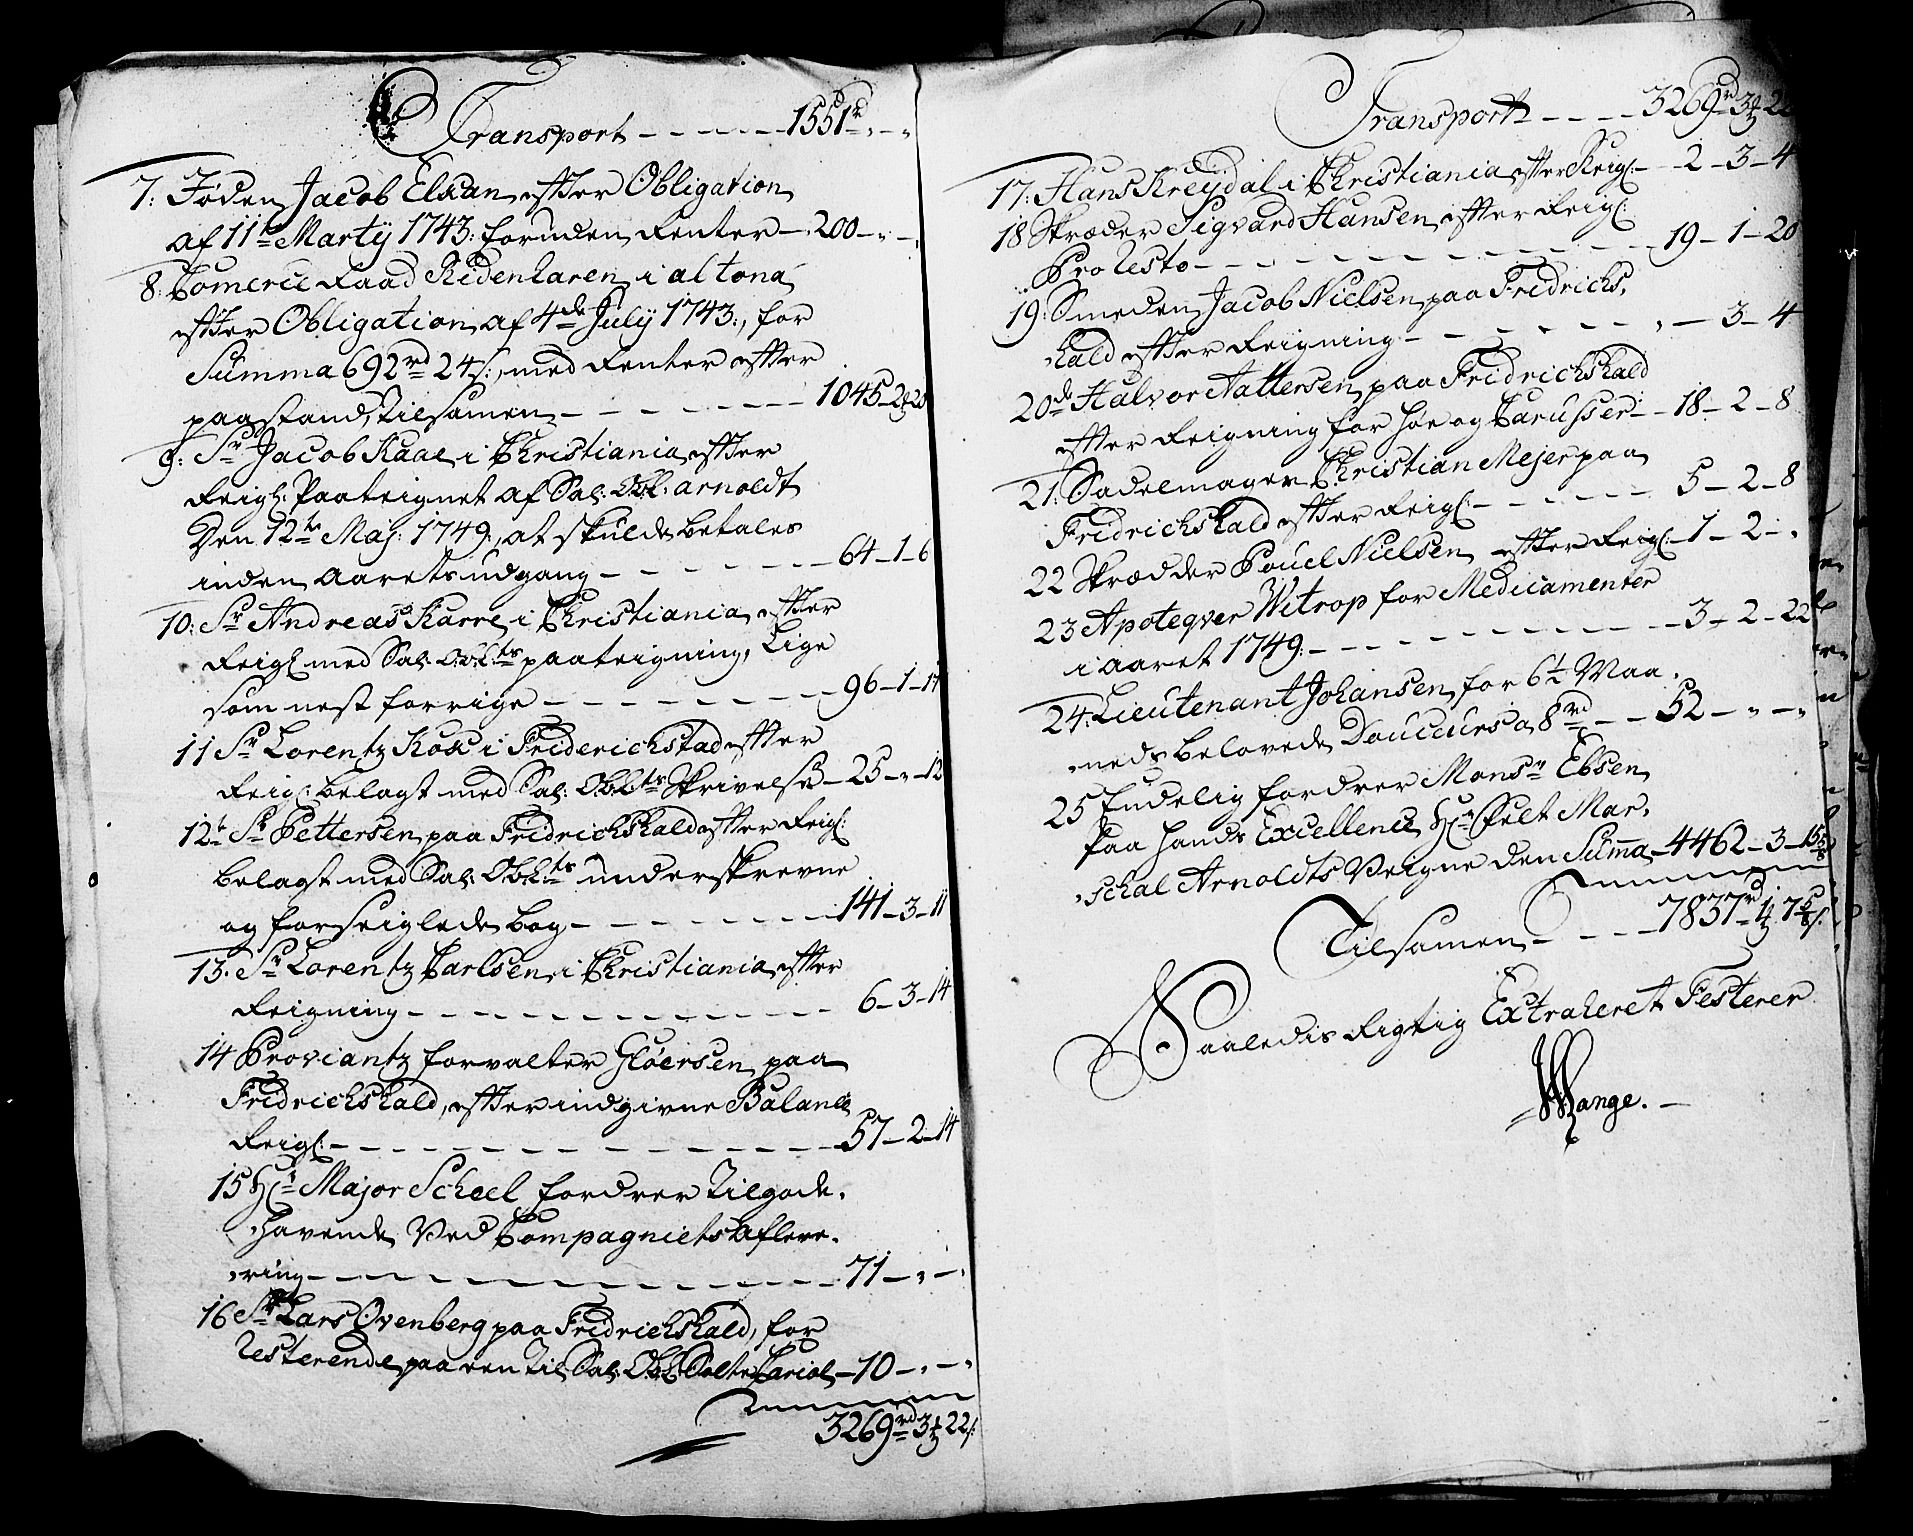 Transport - - - - - 1551rd „ - „
7: Jøden Jacob Elkan, efter Obligation
af 11te Marty 1743: foruden Renter - 200 - „ - „
8: Comerce Raad Ridenharen, i altona
efter Obligation, af 4de July 1743:, for
Summa 692rd 24s:, med Renter efter
paastand, tilsamen - - - - - - 1045 - 2 - 20
9: Sr Jacob Kaae i Christiania, efter
Reigl: Paateignet af Sal: Obl: arnoldt
Den 12te Maj: 1749:, at skulde betales
inden aarets udgang - - - - - - 64 - 1 - 6
10: Sr Andreas Karre, i Christiania, efter
Reigl med Sal: Obl:ts paateigning, Lige
som nest forrige - - - - - - - 96 - 1 - 14
11 Sr Lorentz Kox i Friderichstad efter
Reigl: belagt med Sal: Obl:ts Skrivelse - 25 - „ - 12
12te Sr Pettersen, paa Fridrichshald efter Reigl:
belagt med Sal: Obl:ts underskrevne
og forseiglede bog - - - - - - - 141 - 3 - 11
13. Sr Lorentz Carlsen, i Christiania, efter
Reigning - - - - - - - - - - 6 - 3 - 14
14 Proviantz forvalter Gløersen, paa
Fridrichshald, efter indgivne Balance
Reigl: - - - - - - - - - - 57 - 2 - 14
15 Hr Major Scheel fordrer tilgode-
havende ved Compagniets afleve-
ring - - - - - - - - - - 71 - „ - „
16 Sr Lars Ovenberg paa Fridrichshald, for
Resterende paa en til Sal: Obl: Solte Cariol - 10 - „ - „
3269rd 3 22s:
Transport - - - - 3269rd 3 22
17: Hans Kreydal i Christiania, efter Reigl: - 2 - 3 - 4
18 Skræder Sigvard Hansen, efter Reigl:
Pro Resto - - - - - - - - - 19 - 1 - 20
19: Smeden, Jacob Nielsen, paa Fridrichs-
hald efter Reigning - - - - - - „ - 3 - 4
20de Halvor Aattersen, paa Fridrichshald
efter Reigning for høe og Carusser - 18 - 2 - 8
21: Sadelmager Christian Mejer paa
Fridrichshald efter Reigl: - - - - - 5 - 2 - 8
22 Skrædder Pouel Nielsen, efter Reigl: - 1 - 2 - „
23 Apoteqver Witrop for Medicamenter
i aaret 1749: - - - - - - - - 3 - 2 - 22
24: Lieutenant Johansen, for 6½ Maa-
neds belovede Douceurs a 8rd - - 52 - „ - „
25 Endelig fordrer Monsr Ebsen,
Paa hands Excellence Hr Felt Mar-
schal Arnoldts Veigne den Summa - 4462 - 3 - 15⅝
Tilsamen - - - - 7837rd 1 7⅝s:
Saaledis Rigtig Extraheret Testerer
Mange. -